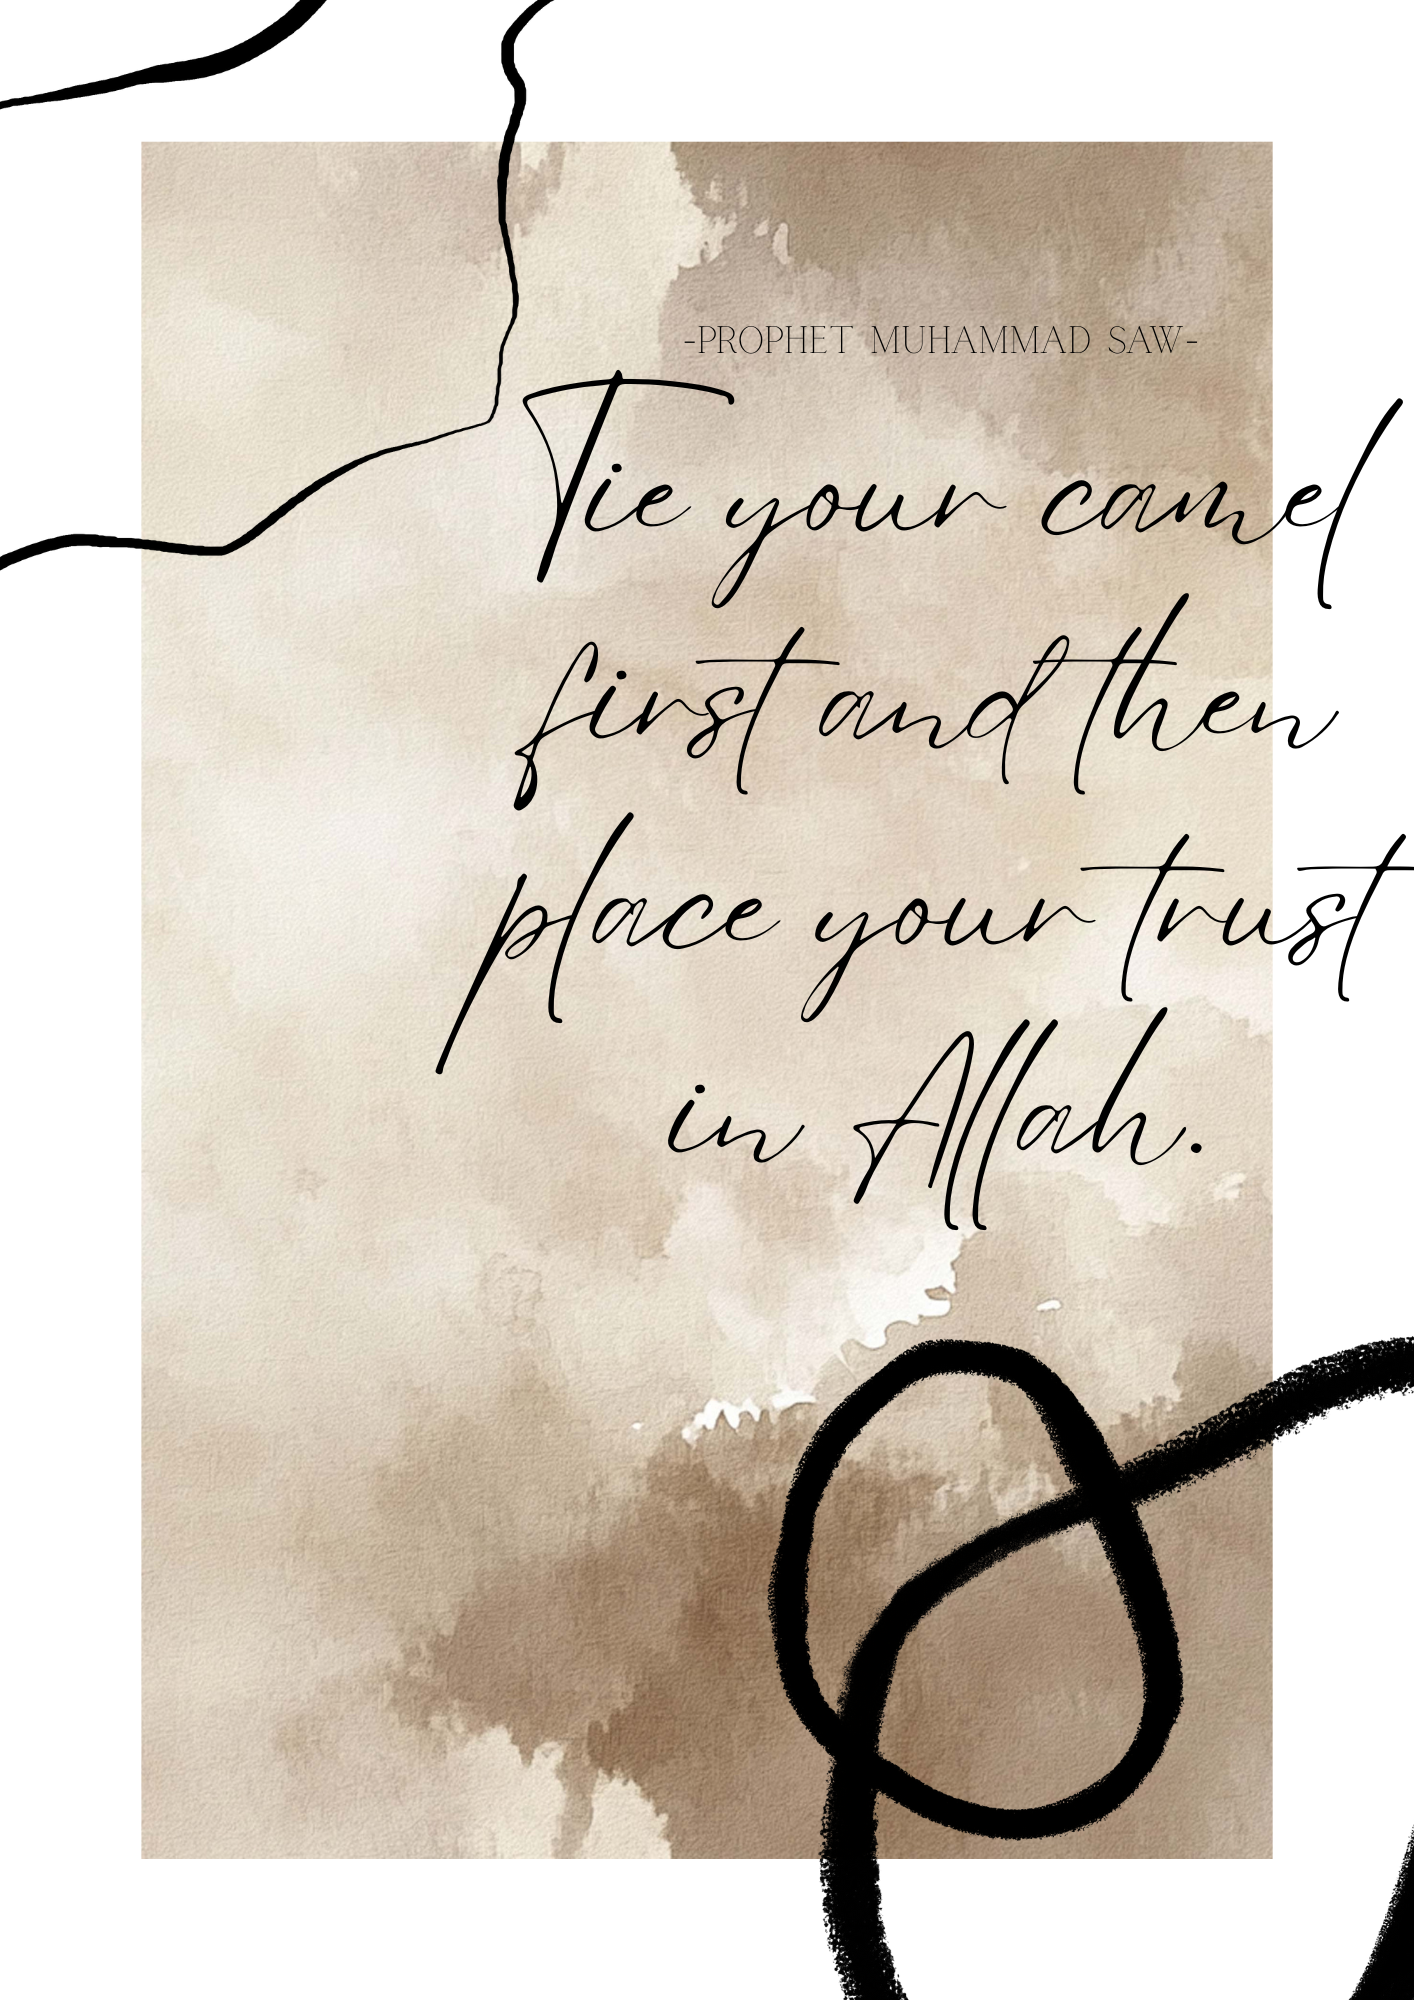 -PROPHET MUHAMMAD SAW-
Tie your camel
first and then
place your trust
in Allah.